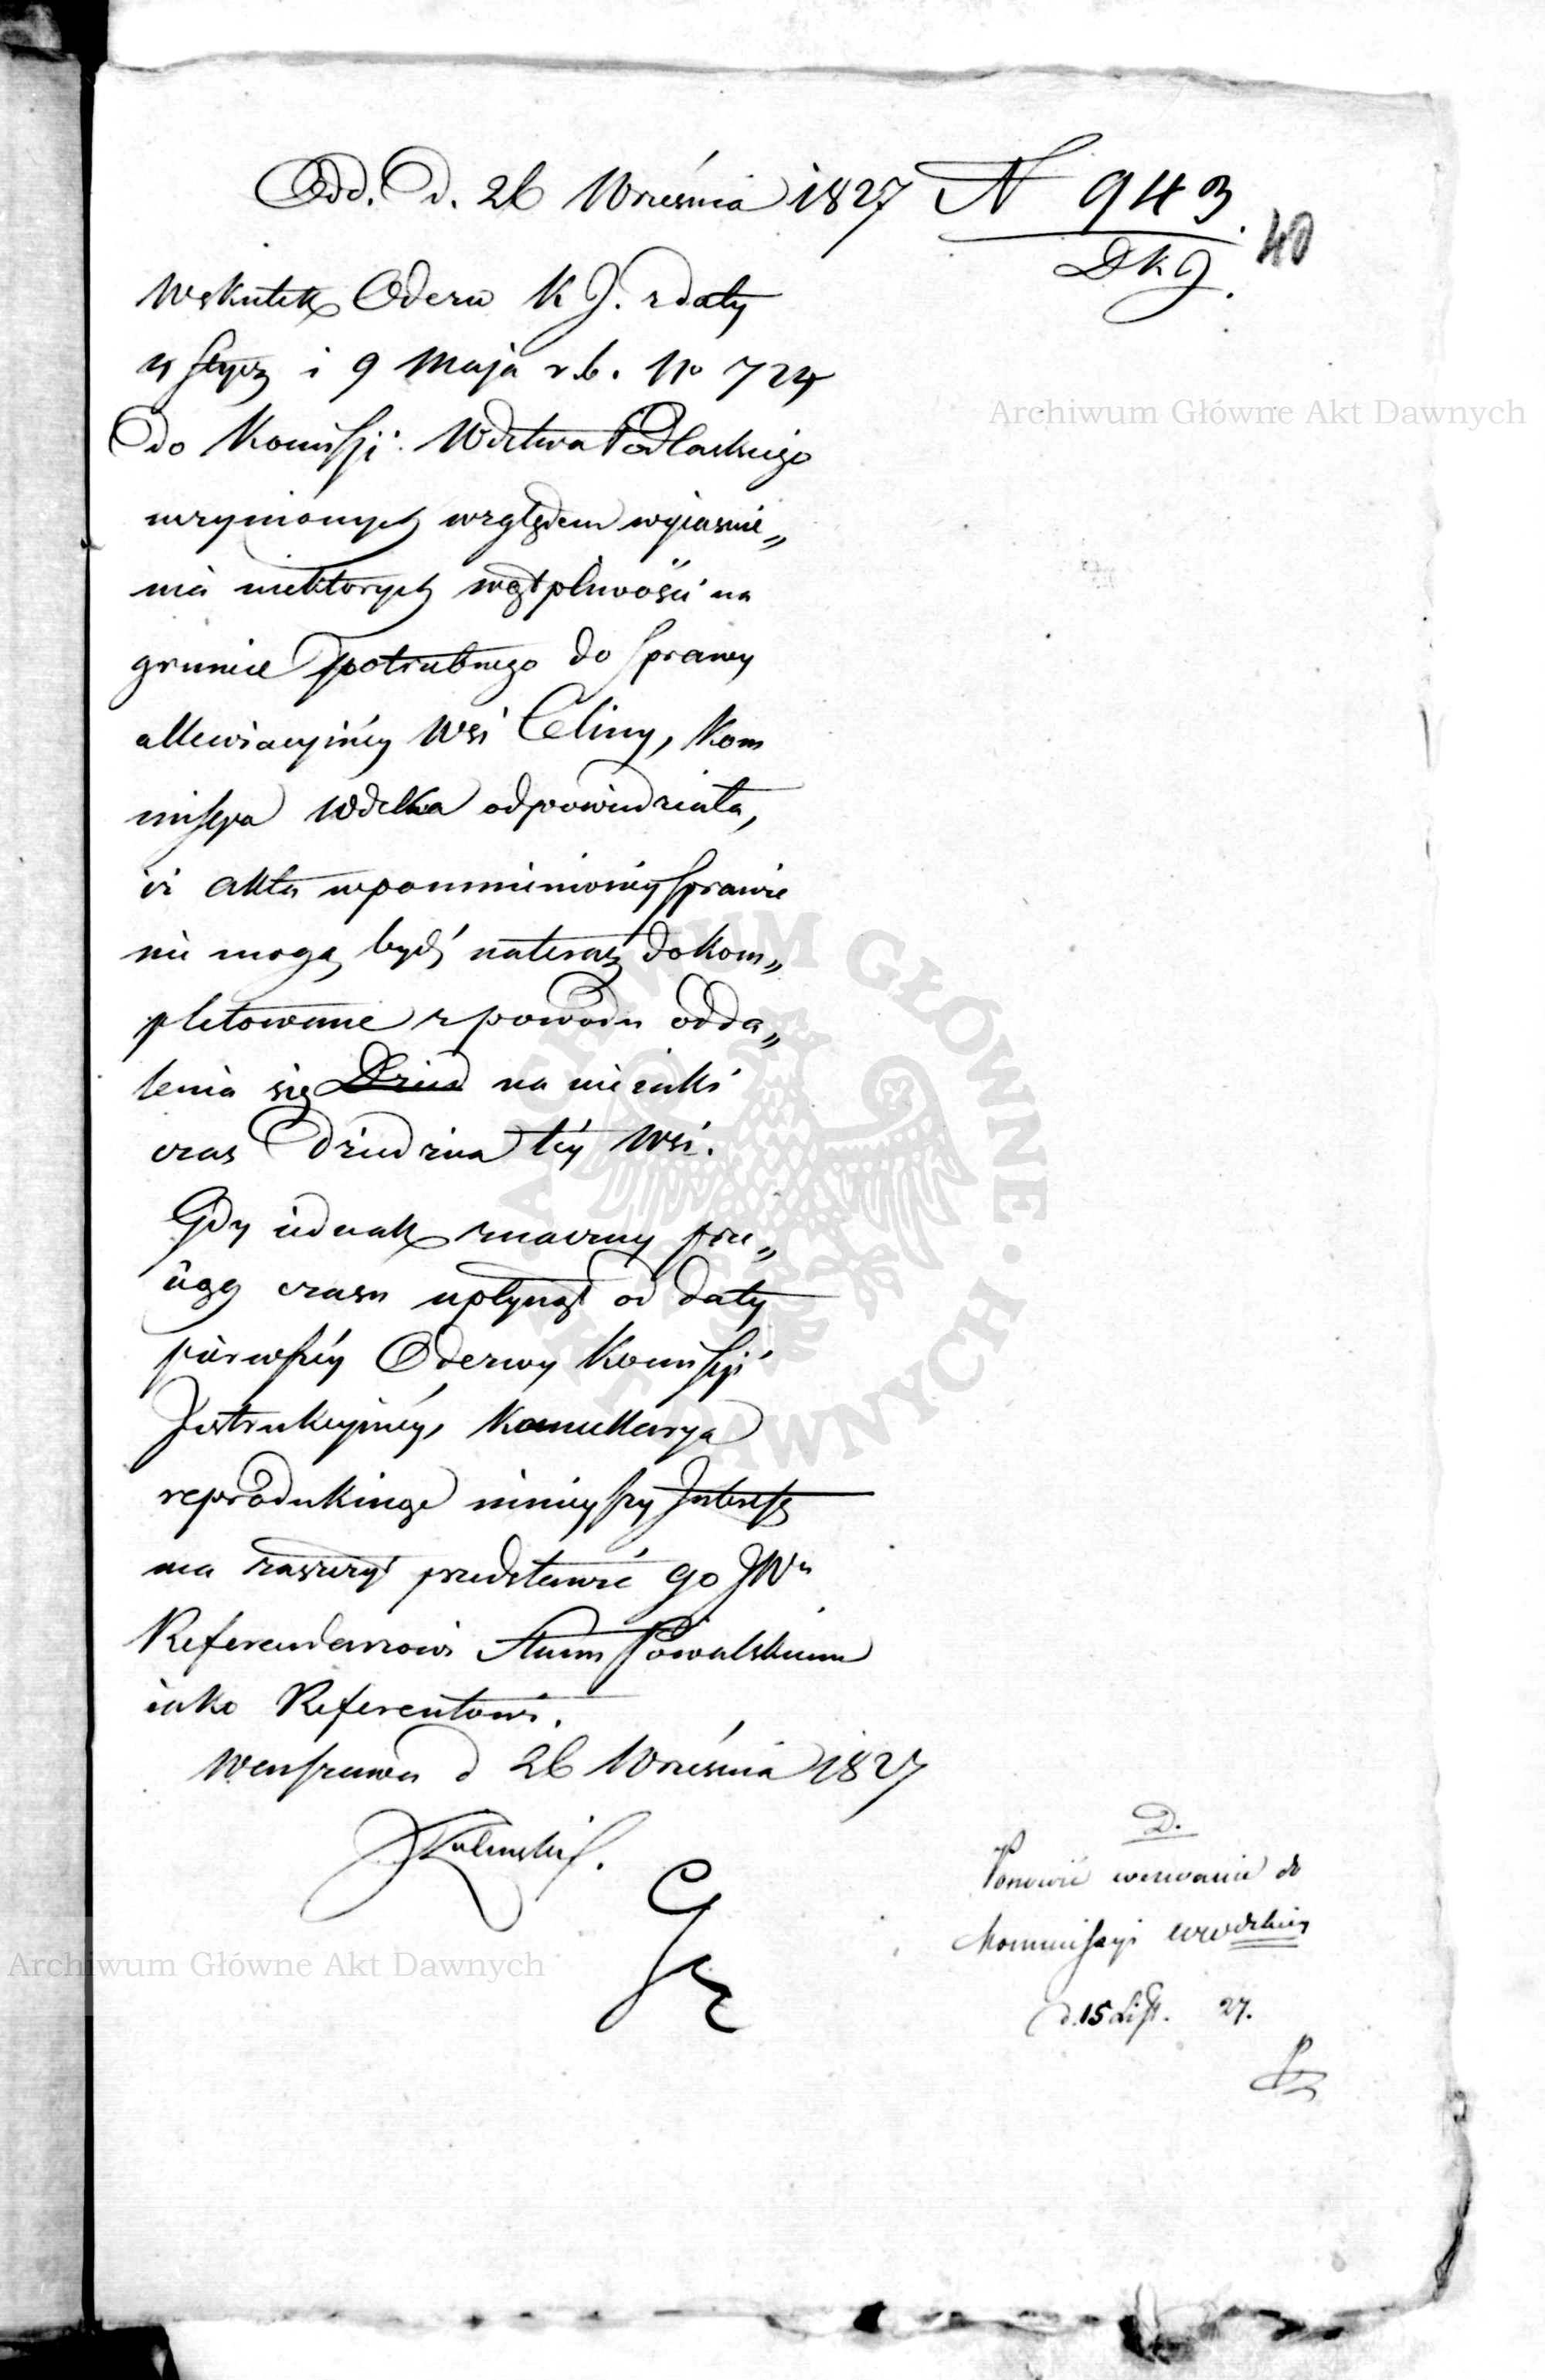 Odd. d. 26 Września 1827 N 943
DKJ.
40
Wskutek Odezw K J. z daty
4 Stycz i 9 Maja r.b. No 724
do Komissji Wdztwa Podlaskiego
uczynionych względem wyiaśnie„
nia niektorych wątpliwości na
gruncie potrzebnego do sprawy
allewiacyinéy Wsi Celiny, Kom
missya Wdzka odpowiedziała,
iż akta wpomnionéy sprawie
nie mogą bydź nateraz dokom„
pletowane z powodu odda„
lenia się Dzied na nieiaki
czas Dziedzica téy Wsi.
Gdy iednak znaczny prze„
ciąg czasu upłynął od daty
pierwszéy Odezwy Komissyi
Instrukcyinéy, Kancellarya
reprodukując ninieyszy Interess
ma zaszczyt przedstawić go JWu
Referendarzowi Stanu Kowalskiemu
iako Referentowi.
Warszawa d 26 Września 1827
D.
Ponowić wezwanie do
Kommissyi wdzkiey
d. 15 List. 27.
Archiwum Główne Akt Dawnych
ARCHIWUM GŁÓWNE AKT DAWNYCH
Archiwum Główne Akt Dawnych